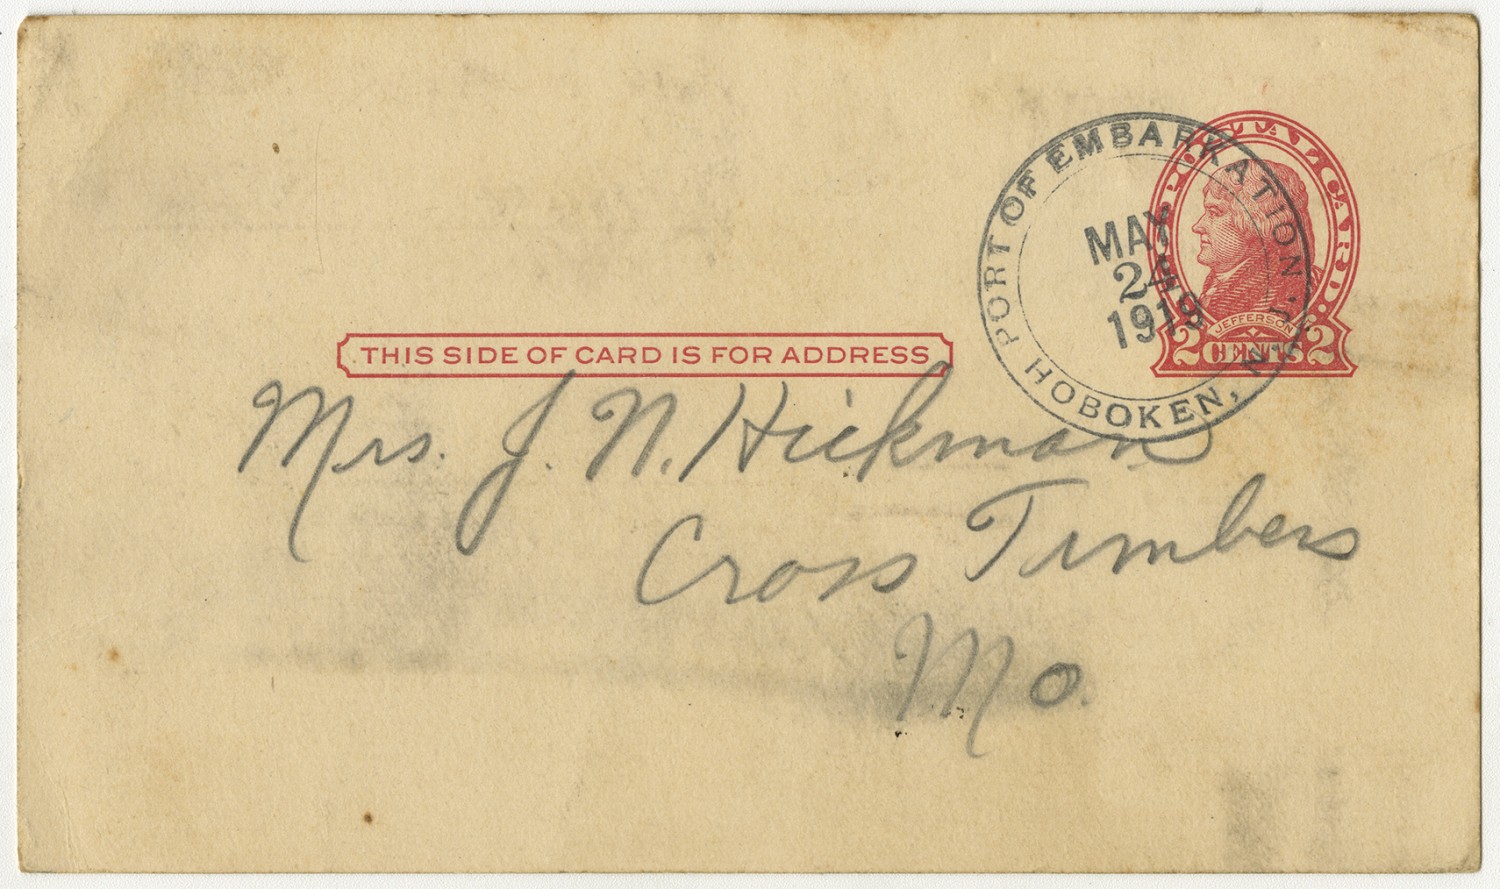 POSTAL CARD.
PORT OF EMBARKATION.
MAY
24
1919
HOBOKEN, N.J.
JEFFERSON
2 CENTS 2
THIS SIDE OF CARD IS FOR ADDRESS
Mrs. J. N. Hickman
Cross Timbers
Mo.